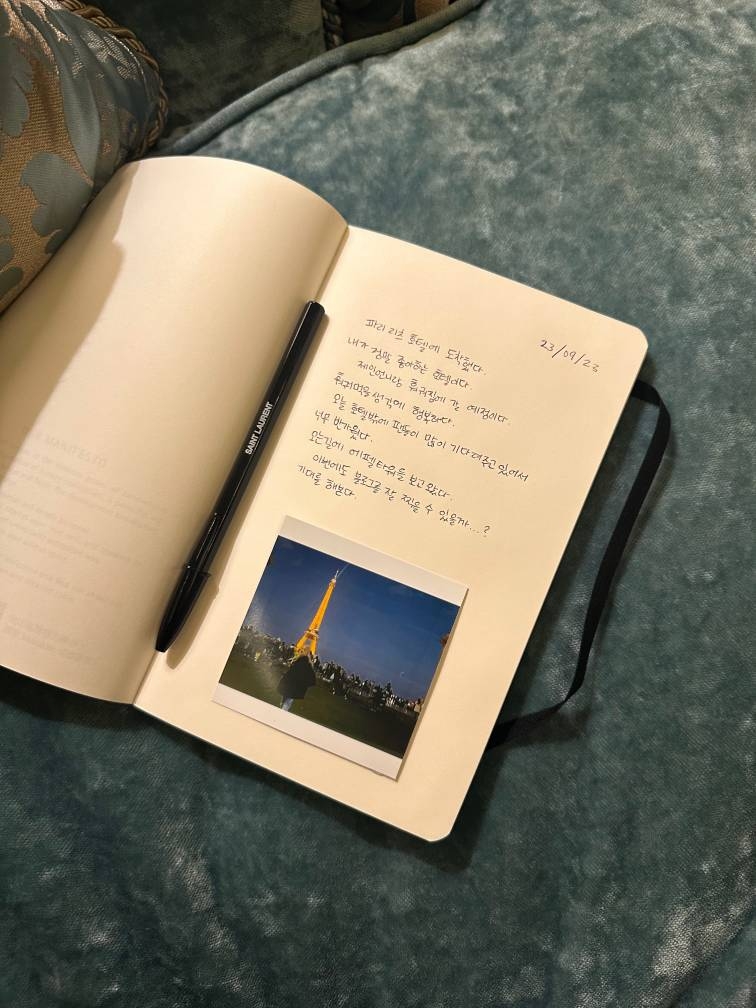 23/09/23
파리 리츠 호텔에 도착했다.
내가 정말 좋아하는 호텔이다.
제인언니랑 훠궈집에 갈 예정이다.
훠궈먹을생각에 행복하다.
오늘 호텔밖에 팬들이 많이 기다려주고있어서
너무 반가웠다.
오는길에 에펠타워를 보고왔다.
이번에도 블로그를 잘 찍을 수 있을까...?
기대를 해본다.
SAINT LAURENT